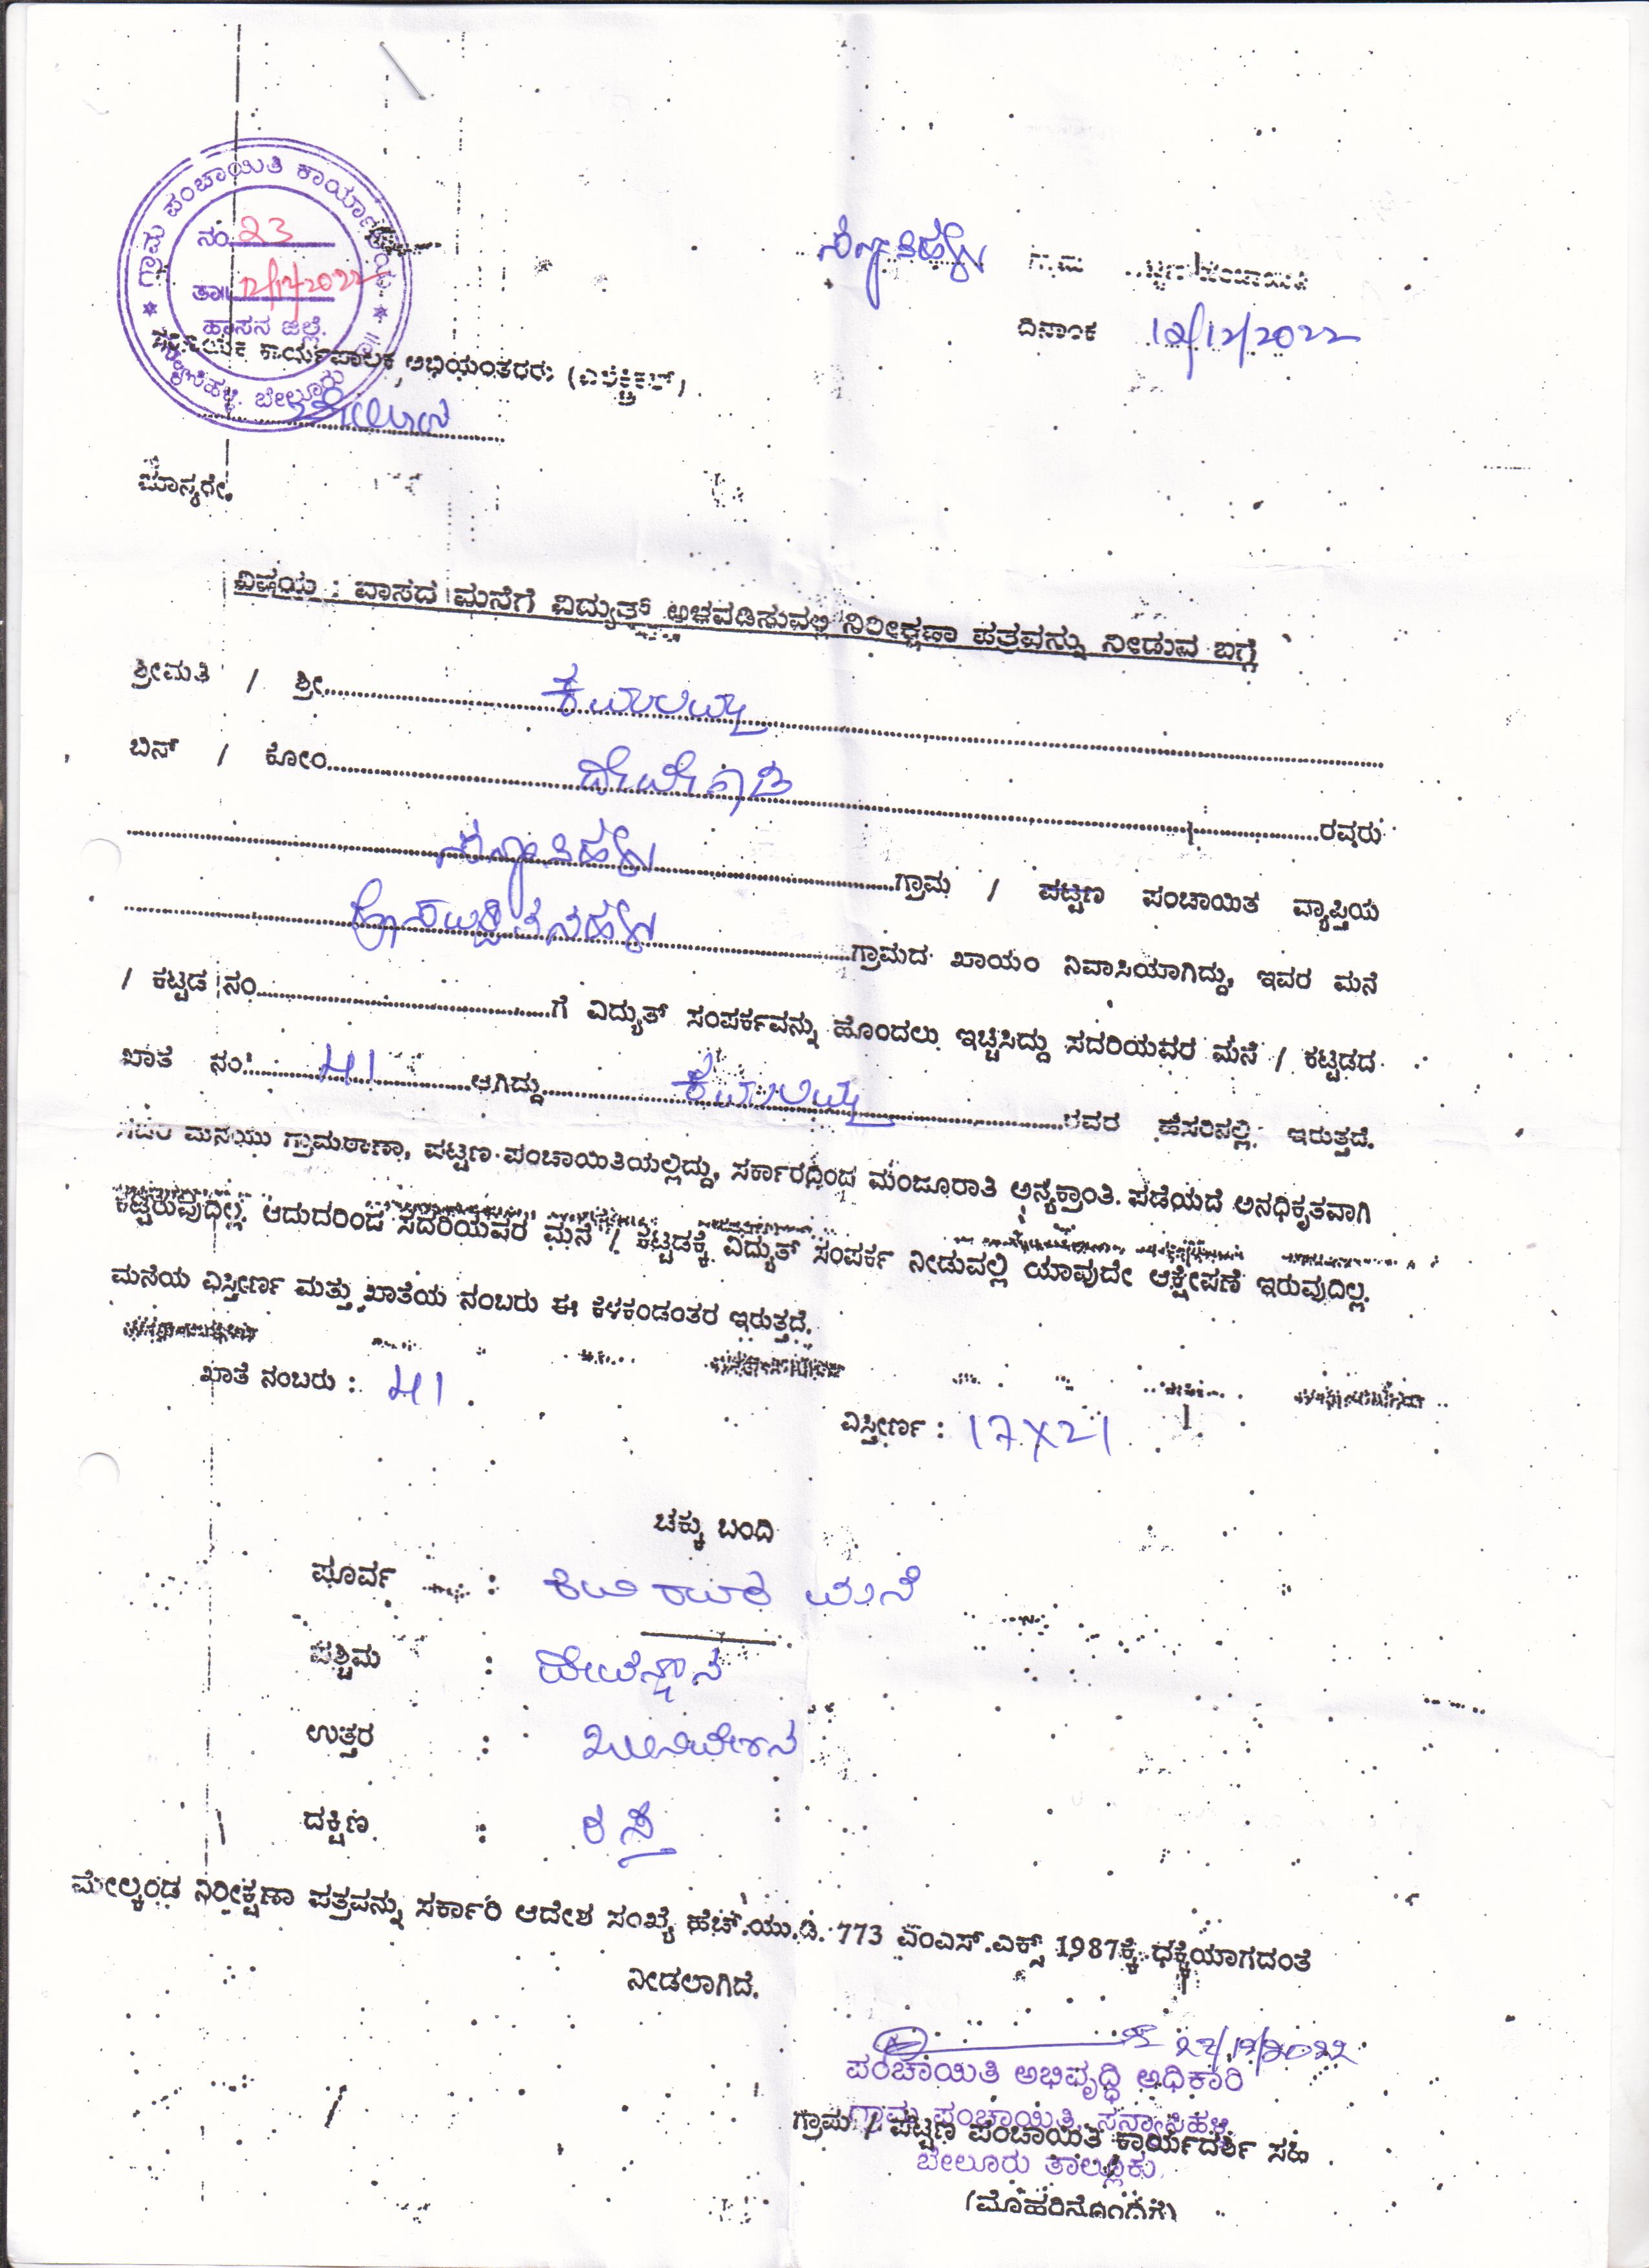 ಗ್ರಾಮ ಪಂಚಾಯಿತಿ ಕಾರ್ಯಾಲಯ
ನಂ. 23
ತಾ॥ 12/12/2022
ಹಾಸನ ಜಿಲ್ಲೆ.
ಸನ್ಯಾಸಿಹಳ್ಳಿ. ಬೇಲೂರು
ಸನ್ಯಾಸಿಹಳ್ಳಿ
ದಿನಾಂಕ 12/12/2022
ಸಹಾಯಕ ಕಾರ್ಯಪಾಲಕ ಅಭಿಯಂತರರು (ಎಲೆಕ್ಟ್ರಿಕಲ್)
ಬೇಲೂರು
ಮಾನ್ಯರೇ,
ವಿಷಯ : ವಾಸದ ಮನೆಗೆ ವಿದ್ಯುತ್ ಅಳವಡಿಸುವಲ್ಲಿ ನಿರೀಕ್ಷಣಾ ಪತ್ರವನ್ನು ನೀಡುವ ಬಗ್ಗೆ
ಶ್ರೀಮತಿ / ಶ್ರೀ ಕಮಲಮ್ಮ
ಬಿನ್ / ಕೋಂ ದೇವೇಗೌಡ ರವರು
ಸನ್ಯಾಸಿಹಳ್ಳಿ ಗ್ರಾಮ / ಪಟ್ಟಣ ಪಂಚಾಯಿತ ವ್ಯಾಪ್ತಿಯ
ಗ್ರಾಮದ ಖಾಯಂ ನಿವಾಸಿಯಾಗಿದ್ದು, ಇವರ ಮನೆ
/ ಕಟ್ಟಡ ನಂ ಗೆ ವಿದ್ಯುತ್ ಸಂಪರ್ಕವನ್ನು ಹೊಂದಲು ಇಚ್ಚಿಸಿದ್ದು ಸದರಿಯವರ ಮನೆ / ಕಟ್ಟಡದ
ಖಾತೆ ನಂ 41 ಆಗಿದ್ದು ಕಮಲಮ್ಮ ರವರ ಹೆಸರಿನಲ್ಲಿ ಇರುತ್ತದೆ.
ಸದರಿ ಮನೆಯು ಗ್ರಾಮಠಾಣಾ, ಪಟ್ಟಣ ಪಂಚಾಯಿತಿಯಲ್ಲಿದ್ದು, ಸರ್ಕಾರದಿಂದ ಮಂಜೂರಾತಿ ಅನ್ಯಕ್ರಾಂತಿ ಪಡೆಯದೆ ಅನಧಿಕೃತವಾಗಿ
ಕಟ್ಟಿರುವುದಿಲ್ಲ. ಆದುದರಿಂದ ಸದರಿಯವರ ಮನೆ / ಕಟ್ಟಡಕ್ಕೆ ವಿದ್ಯುತ್ ಸಂಪರ್ಕ ನೀಡುವಲ್ಲಿ ಯಾವುದೇ ಆಕ್ಷೇಪಣೆ ಇರುವುದಿಲ್ಲ.
ಮನೆಯ ವಿಸ್ತೀರ್ಣ ಮತ್ತು ಖಾತೆಯ ನಂಬರು ಈ ಕೆಳಕಂಡಂತರ ಇರುತ್ತದೆ.
ಖಾತೆ ನಂಬರು : 41
ವಿಸ್ತೀರ್ಣ : 17X21
ಚಕ್ಕು ಬಂದಿ
ಪೂರ್ವ : ಮನೆ
ಪಶ್ಚಿಮ : ದೇವಸ್ಥಾನ
ಉತ್ತರ : ಖಾಲಿನಿವೇಶನ
ದಕ್ಷಿಣ : ರಸ್ತೆ
ಮೇಲ್ಕಂಡ ನಿರೀಕ್ಷಣಾ ಪತ್ರವನ್ನು ಸರ್ಕಾರಿ ಆದೇಶ ಸಂಖ್ಯೆ ಹೆಚ್.ಯು.ಡಿ. 773 ಎಂಎಸ್.ಎಕ್ಸ್ 1987ಕ್ಕೆ ಧಕ್ಕೆಯಾಗದಂತೆ
ನೀಡಲಾಗಿದೆ.
22/12/2022
ಪಂಚಾಯಿತಿ ಅಭಿವೃದ್ಧಿ ಅಧಿಕಾರಿ
ಗ್ರಾಮ ಪಂಚಾಯಿತಿ, ಸನ್ಯಾಸಿಹಳ್ಳಿ
ಗ್ರಾಮ / ಪಟ್ಟಣ ಪಂಚಾಯಿತಿ ಕಾರ್ಯದರ್ಶಿ ಸಹಿ
ಬೇಲೂರು ತಾಲ್ಲೂಕು.
(ಮೊಹರಿನೊಂದಿಗೆ)